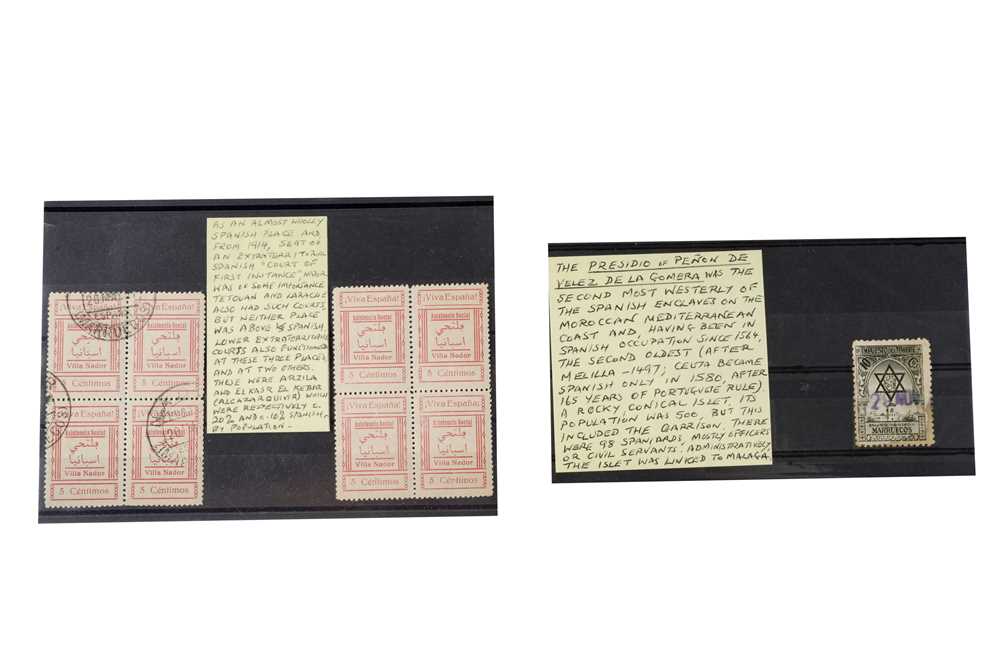 AS AN ALMOST WHOLLY
SPANISH PLACE AND
FROM 1914, SEAT OF
AN EXTRATERRITORIAL
SPANISH "COURT OF
FIRST INSTANCE", NADOR
WAS OF SOME IMPORTANCE
TETOUAN AND LARACHE
ALSO HAD SUCH COURTS,
BUT NEITHER PLACE
WAS ABOVE SPANISH.
LOWER EXTRATERRITORIAL
COURTS ALSO FUNCTIONED
AT THESE THREE PLACES
AND AT TWO OTHERS.
THESE WERE ARZILA
AND ELKASR EL KEBIR
(ALCAZARQUIVIR) WHICH
WERE RESPECTIVELY C.
20% AND C. 10% SPANISH,
BY POPULATION.
¡Viva España! ¡Viva España!
Asistencia Social Asistencia Social
فلتحي فلتحي
اسبانيا اسبانيا
Villa Nador Villa Nador
5 Céntimos 5 Céntimos
¡Viva España!
Asistencia Social
فلتحي فلتحي
اسبانيا اسبانيا
Villa Nador Villa Nador
5 Céntimos 5 Céntimos
¡Viva España! ¡Viva España!
Asistencia Social Asistencia Social
فلتحي فلتحي
اسبانيا اسبانيا
Villa Nador Villa Nador
5 Céntimos 5 Céntimos
¡Viva España! ¡Viva España!
Asistencia Social Asistencia Social
فلتحي فلتحي
اسبانيا اسبانيا
Villa Nador Villa Nador
5 Céntimos 5 Céntimos
THE PRESIDIO OF PEÑON DE
VELEZ DE LA GOMERA WAS THE
SECOND MOST WESTERLY OF
THE SPANISH ENCLAVES ON THE
MOROCCAN MEDITERRANEAN
COAST AND, HAVING BEEN IN
SPANISH OCCUPATION SINCE 1564,
THE SECOND OLDEST (AFTER
MELILLA - 1497; CEUTA BECAME
SPANISH ONLY IN 1580, AFTER
165 YEARS OF PORTUGUESE RULE)
A ROCKY CONICAL ISLET, ITS
POPULATION WAS 500, BUT THIS
INCLUDED THE GARRISON. THERE
WERE 98 SPANIARDS, MOSTLY OFFICERS
OR CIVIL SERVANTS. ADMINISTRATIVELY
THE ISLET WAS LINKED TO MALAGA
10 Cs
MARRUECOS